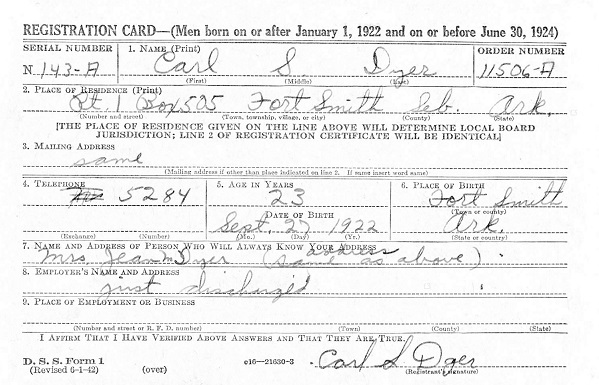 REGISTRATION CARD—(Men born on or after January 1, 1922 and on or before June 30, 1924)
SERIAL NUMBER 1. NAME (Print) ORDER NUMBER
N 143-A Carl S. Dyer 11506-A
(First) (Middle) (Last)
2. PLACE OF RESIDENCE (Print)
Rt. 1 Box 505 Fort Smith Seb. Ark.
(Number and street) (Town, township, village, or city) (County) (State)
[THE PLACE OF RESIDENCE GIVEN ON THE LINE ABOVE WILL DETERMINE LOCAL BOARD
JURISDICTION; LINE 2 OF REGISTRATION CERTIFICATE WILL BE IDENTICAL]
3. MAILING ADDRESS
same
(Mailing address if other than place indicated on line 2. If same insert word same)
4. TELEPHONE 5. AGE IN YEARS 6. PLACE OF BIRTH
5284 23 Fort Smith
DATE OF BIRTH (Town or county)
Sept. 27 1922 Ark.
(Exchange) (Number) (Mo.) (Day) (Yr.) (State or country)
7. NAME AND ADDRESS OF PERSON WHO WILL ALWAYS KNOW YOUR ADDRESS
Mrs. Jean M Dyer (address same as above)
8. EMPLOYER'S NAME AND ADDRESS
just discharged
9. PLACE OF EMPLOYMENT OR BUSINESS
(Number and street or R. F. D. number) (Town) (County) (State)
I AFFIRM THAT I HAVE VERIFIED ABOVE ANSWERS AND THAT THEY ARE TRUE.
D. S. S. Form 1 e16—21630-3 Carl S Dyer
(Revised 6-1-42) (over) (Registrant's signature)